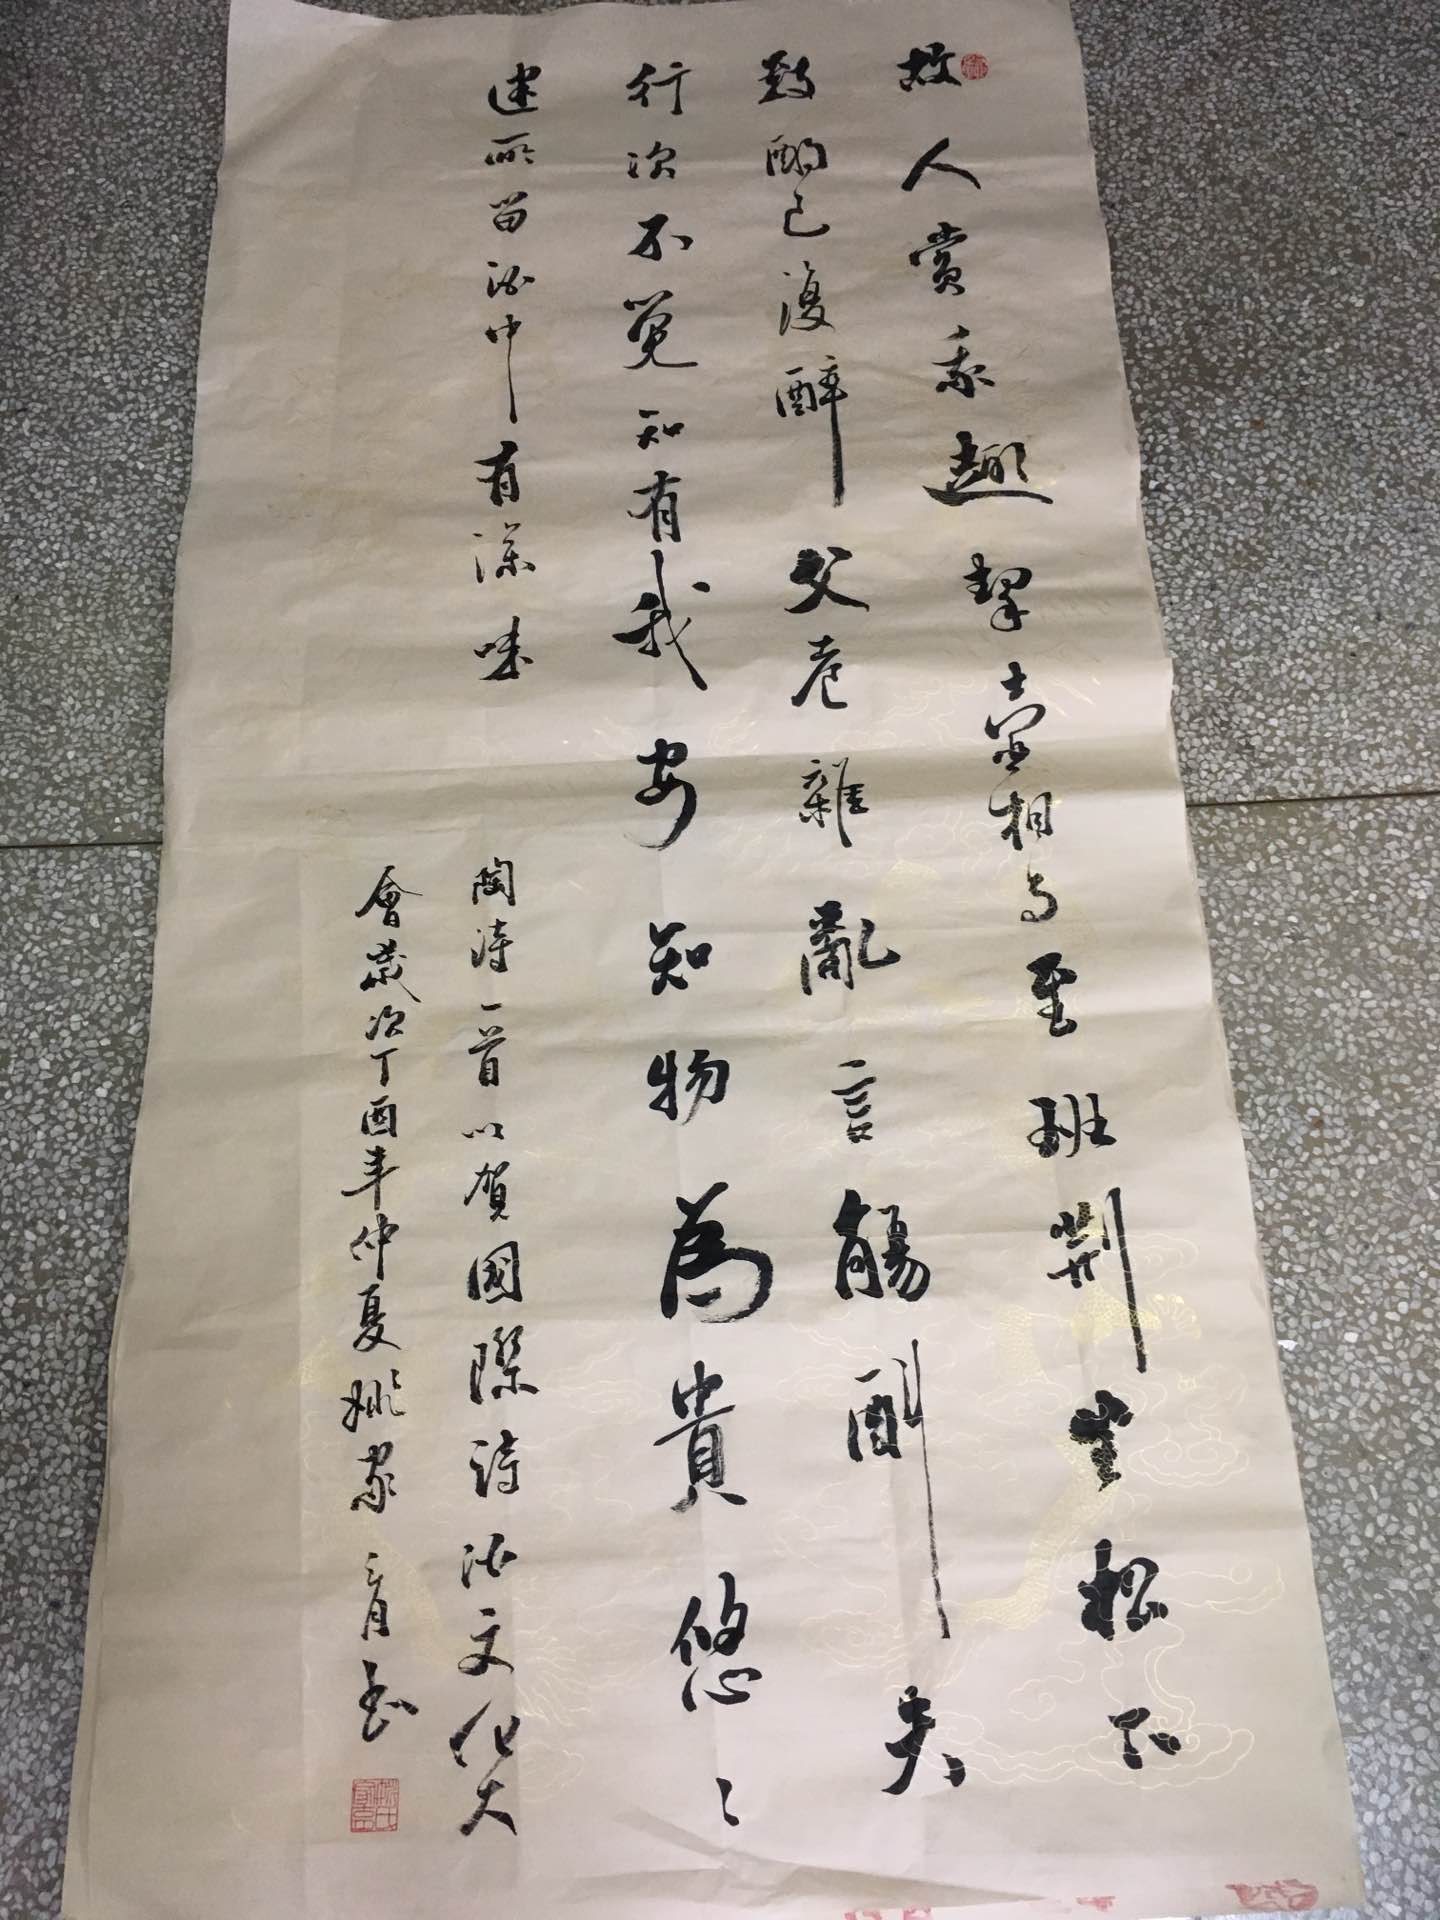 故人賞我趣挈壺相與至班荊坐松下
數酌已復醉父老雜亂言觴酌失
行次不覺知有我安知物為貴悠〻
迷所留酒中有深味
陶詩一首以賀國際詩酒文化大
會歲次丁酉年仲夏姚家育書